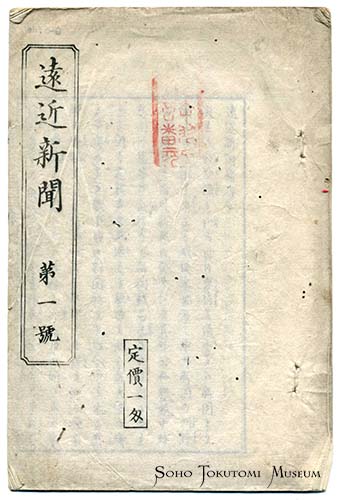 遠近新聞 第一號
定價一匁
SOHO TOKUTOMI MUSEUM